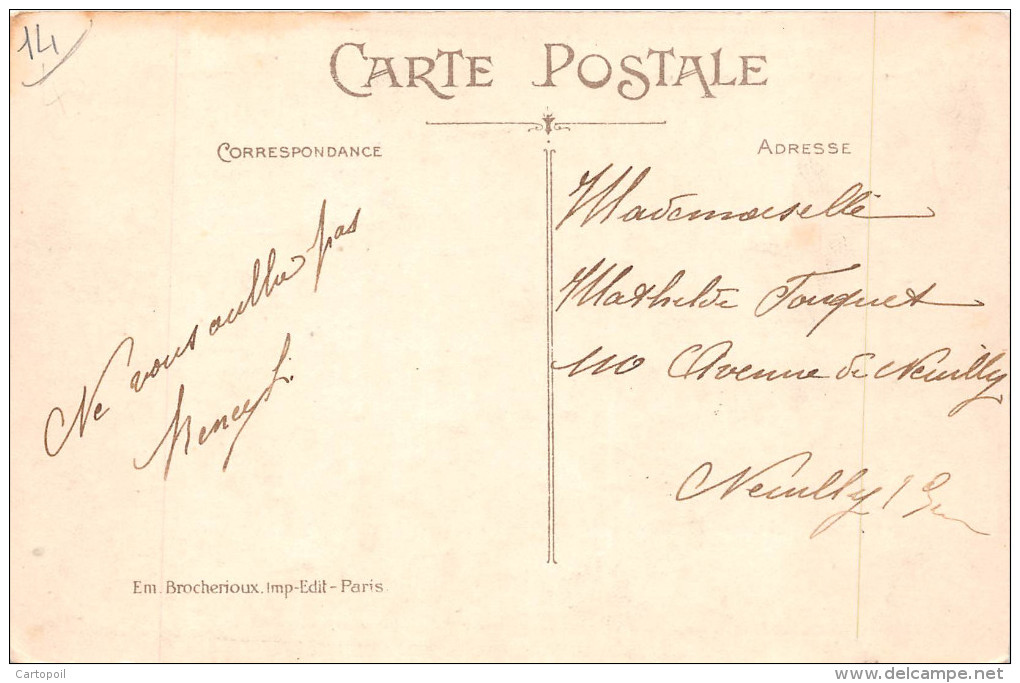 14
CARTE POSTALE
CORRESPONDANCE
ADRESSE
Ne vous oublie pas
Mademoiselle
Mathilde Touquet
110 Avenue de Neuilly
Neuilly s/
Em. Brocherioux. Imp-Edit - Paris
Cartopoil
delcampe.net